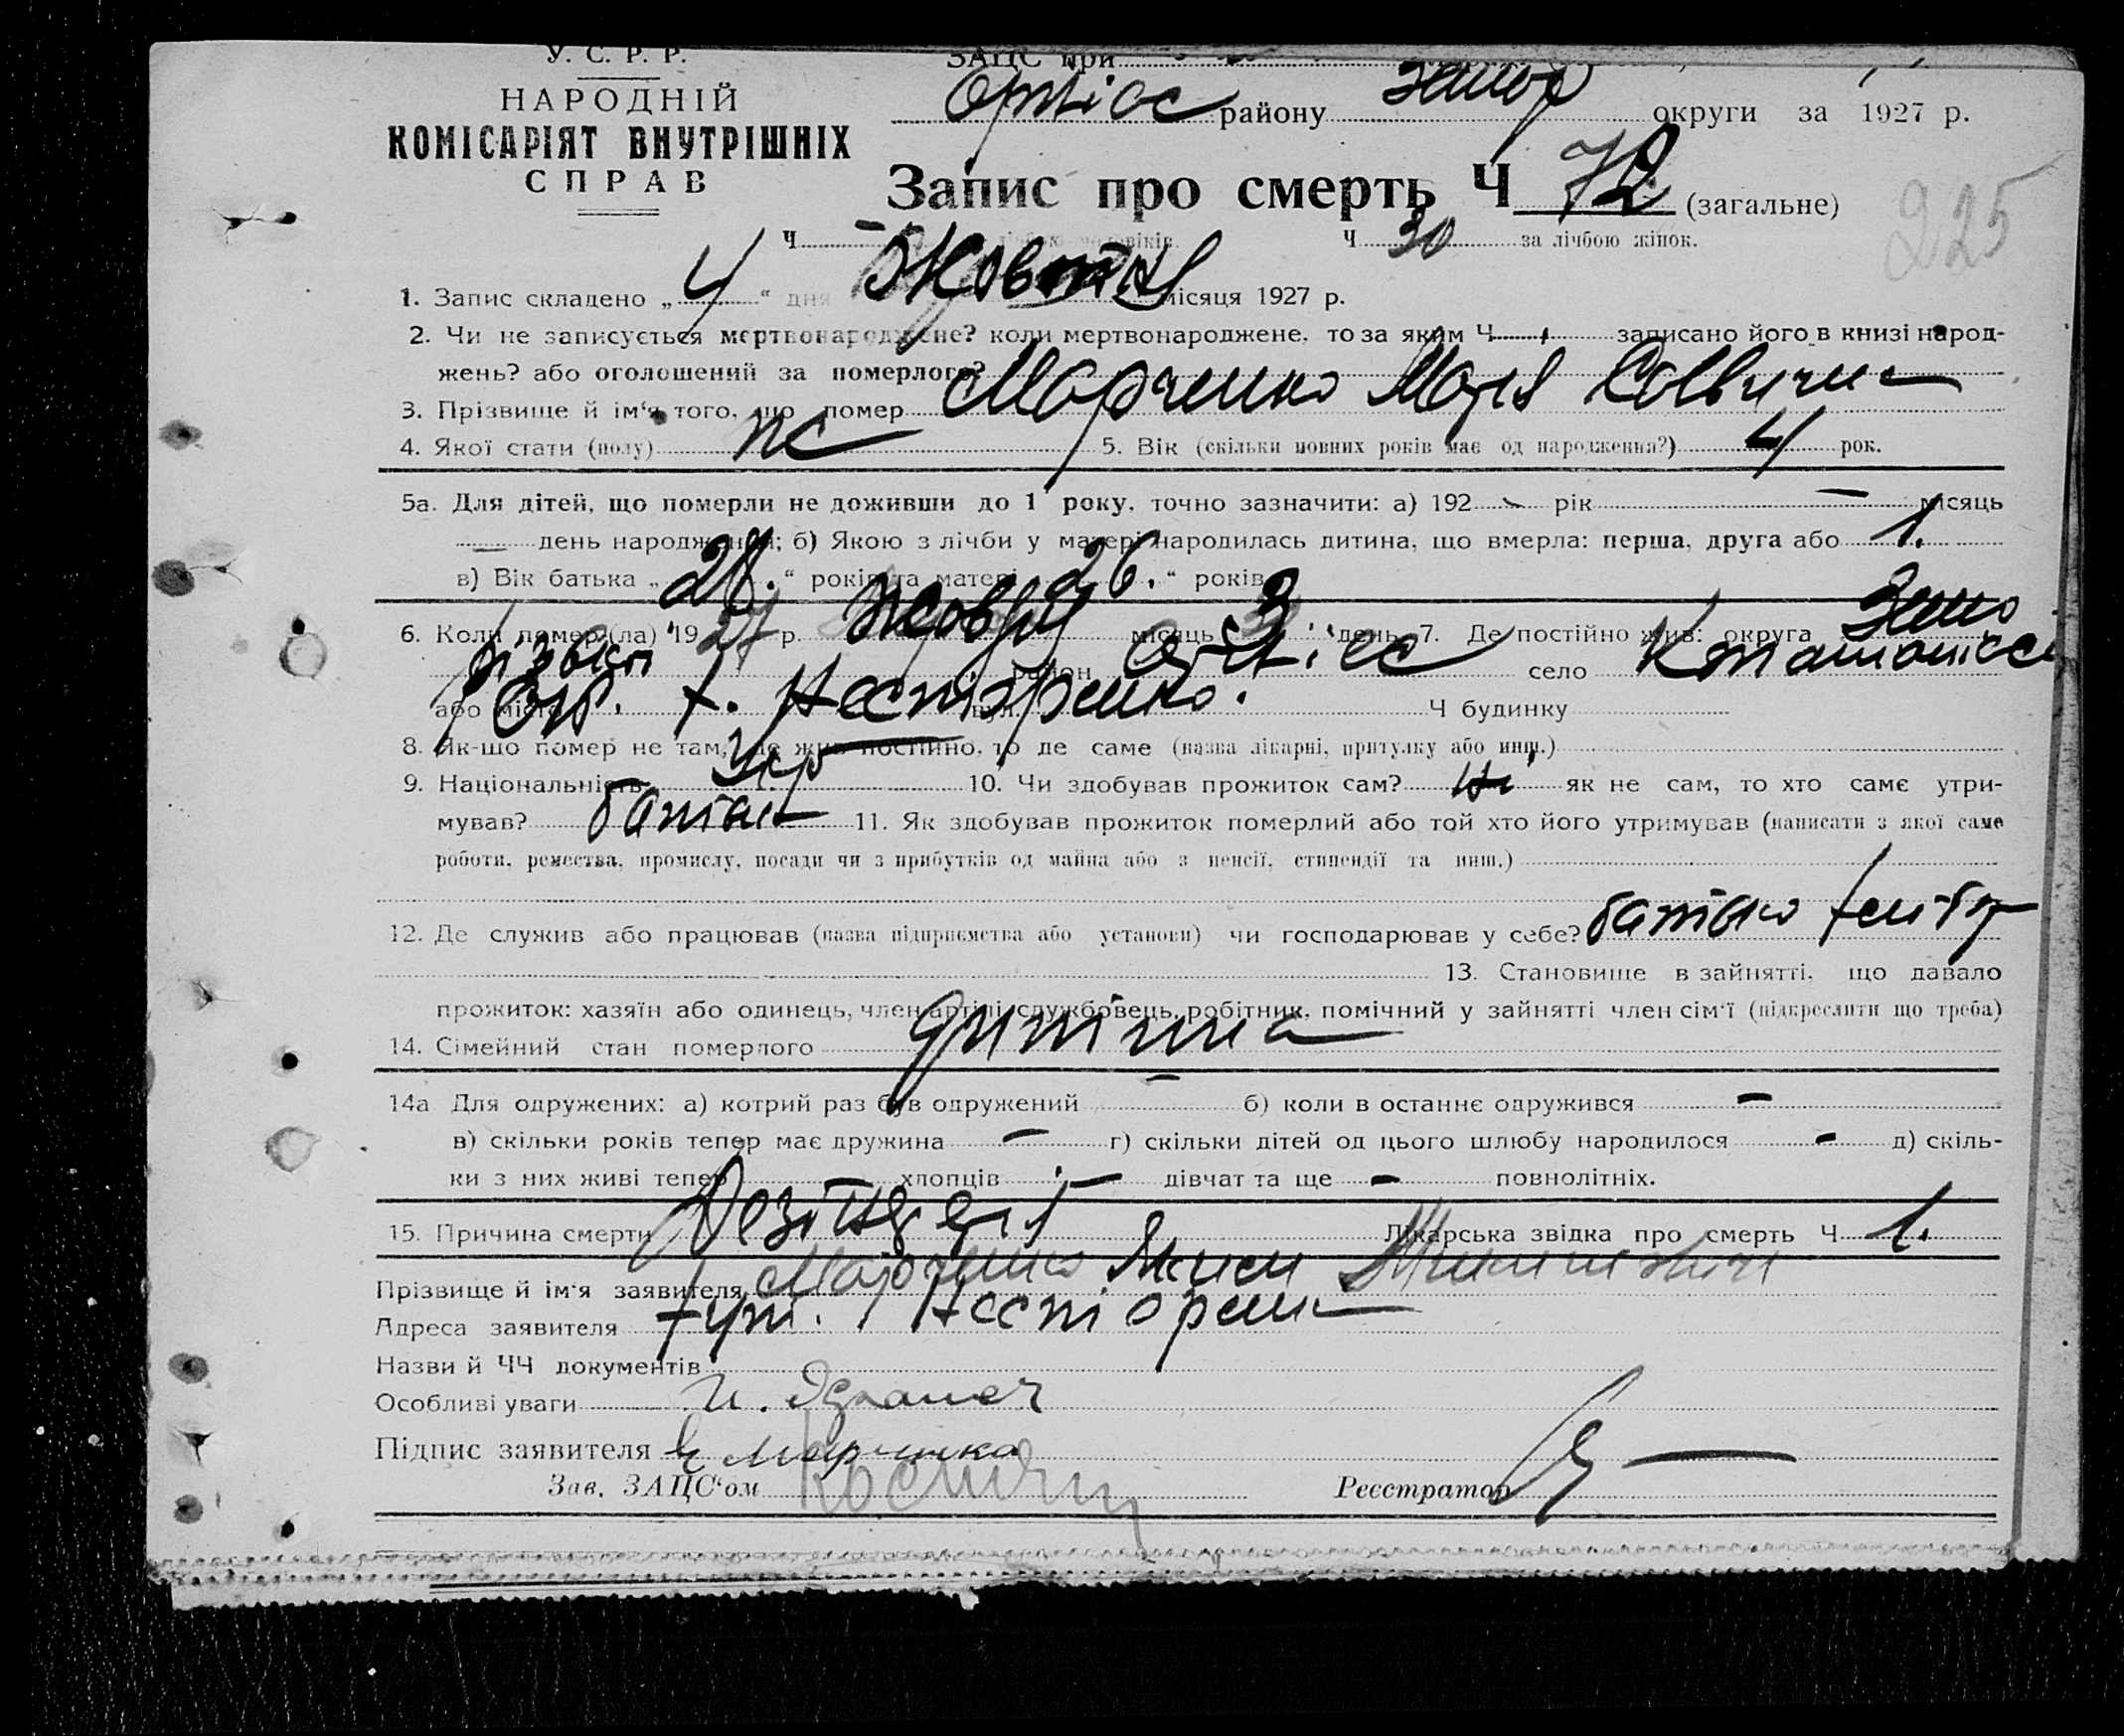 У. С. Р. Р.
НАРОДНІЙ
КОМІСАРІЯТ ВНУТРІШНІХ
СПРАВ
ЗАЦС при
району Запор округи за 1927 р.
Запис про смерть Ч 72 (загальне)
225
Ч – лічбою чоловіків Ч 30 за лічбою жінок.
1. Запис складено „ 4 “ дня Жовтня місяця 1927 р.
2. Чи не записується мертвонароджене? коли мертвонароджене, то за яким Ч записано його в книзі народ-
жень? або оголошений за померлого?
3. Прізвище й ім‘я того, що помер Марченко Марія
4. Якої стати (полу) жс 5. Вік (скільки повних років має од народження?) 4 рок.
5а. Для дітей, що померли не доживши до 1 року, точно зазначити: а) 192 рік – місяць
– день народження; б) Якою з лічби у матері народилась дитина, що вмерла: перша, друга або 1.
в) Вік батька „ 28. “ років та матері 26. “ років
6. Коли помер (ла) 1927 р. Жовтня місяць 3 день 7. Де постійно жив: округа Запо
район село
або місто х. Несторенко. вул. Ч будинку
8. Як-що помер не там, де жив постійно, то де саме (назва лікарні, притулку або инш.)
9. Національність Укр 10. Чи здобував прожиток сам? Ні як не сам, то хто саме утри-
мував? батько 11. Як здобував прожиток померлий або той хто його утримував (написати з якої саме
роботи, ремества, промислу, посади чи з прибутків од майна або з пенсії, стипендії та инш.)
12. Де служив або працював (назва підприємства або установи) чи господарював у себе? батько
13. Становище в зайнятті, що давало
прожиток: хазяїн або одинець, член артілі, службовець, робітник, помічний у зайнятті член сім‘ї (підкреслити що треба)
14. Сімейний стан померлого дитина
14а Для одружених: а) котрий раз був одружений – б) коли в останнє одружився –
в) скільки років тепер має дружина – г) скільки дітей од цього шлюбу народилося – д) скіль-
ки з них живі тепер хлопців – дівчат та ще – повнолітніх.
15. Причина смерти Лікарська звідка про смерть Ч 1.
Прізвище й ім‘я заявителя Марченко
Адреса заявителя хут. Несторенко
Назви й ЧЧ документів
Особливі уваги
Підпис заявителя
Зав. ЗАЦС‘ом
Реєстратор